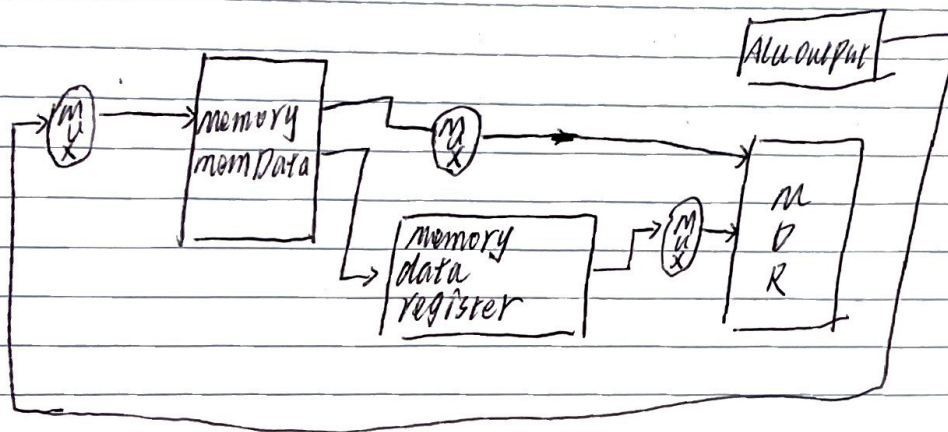 ALU output
MUX
memory
memData
MUX
memory
data
register
MUX
MDR